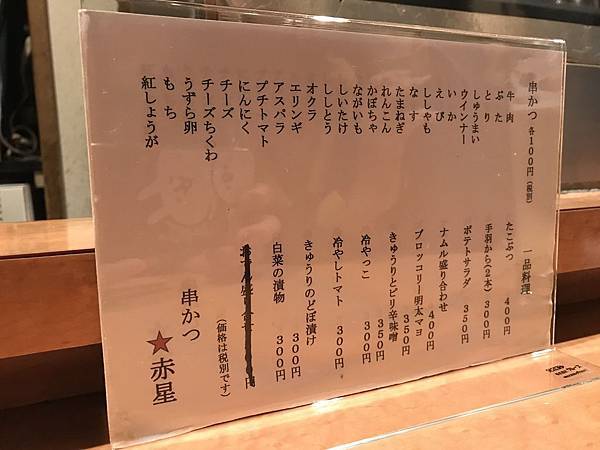 串かつ 各100円（税別）
牛肉
ぶた
とり
しゅうまい
ウインナー
いか
えび
ししゃも
なす
たまねぎ
れんこん
かぼちゃ
ながいも
しいたけ
ししとう
オクラ
エリンギ
アスパラ
プチトマト
にんにく
チーズ
チーズちくわ
うずら卵
もち
紅しょうが
一品料理
たこぶつ 400円
手羽から(2本) 300円
ポテトサラダ 350円
ナムル盛り合わせ 400円
ブロッコリー明太マヨ 350円
きゅうりとピリ辛味噌 350円
冷やっこ 300円
冷やしトマト 300円
きゅうりのどぼ漬け 300円
白菜の漬物 300円
(価格は税別です)
串かつ
★赤星